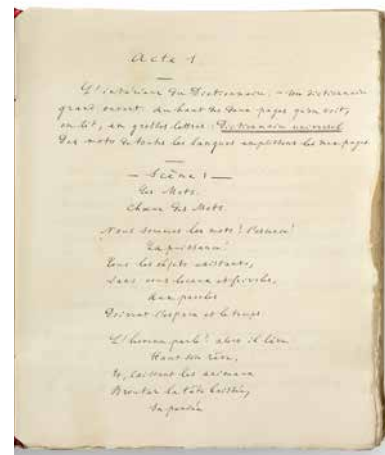 Acte 1
L'intérieur du Dictionnaire. – Un dictionnaire
grand ouvert. Au haut des deux pages qu'on voit,
on lit, en grosses lettres : Dictionnaire universel
Des mots de toutes les langues emplissent les deux pages.
— Scène 1 —
Les Mots.
Chœur des Mots.
Nous sommes les mots !
La puissance !
Tous les objets existants,
Sans nous locaux et frivoles,
Aux paroles
Doivent l'espace et le temps.
L'homme parle ! alors il lève
Haut son rêve,
Et, laissant les animaux
Brouter la tête baissée,
Sa pensée